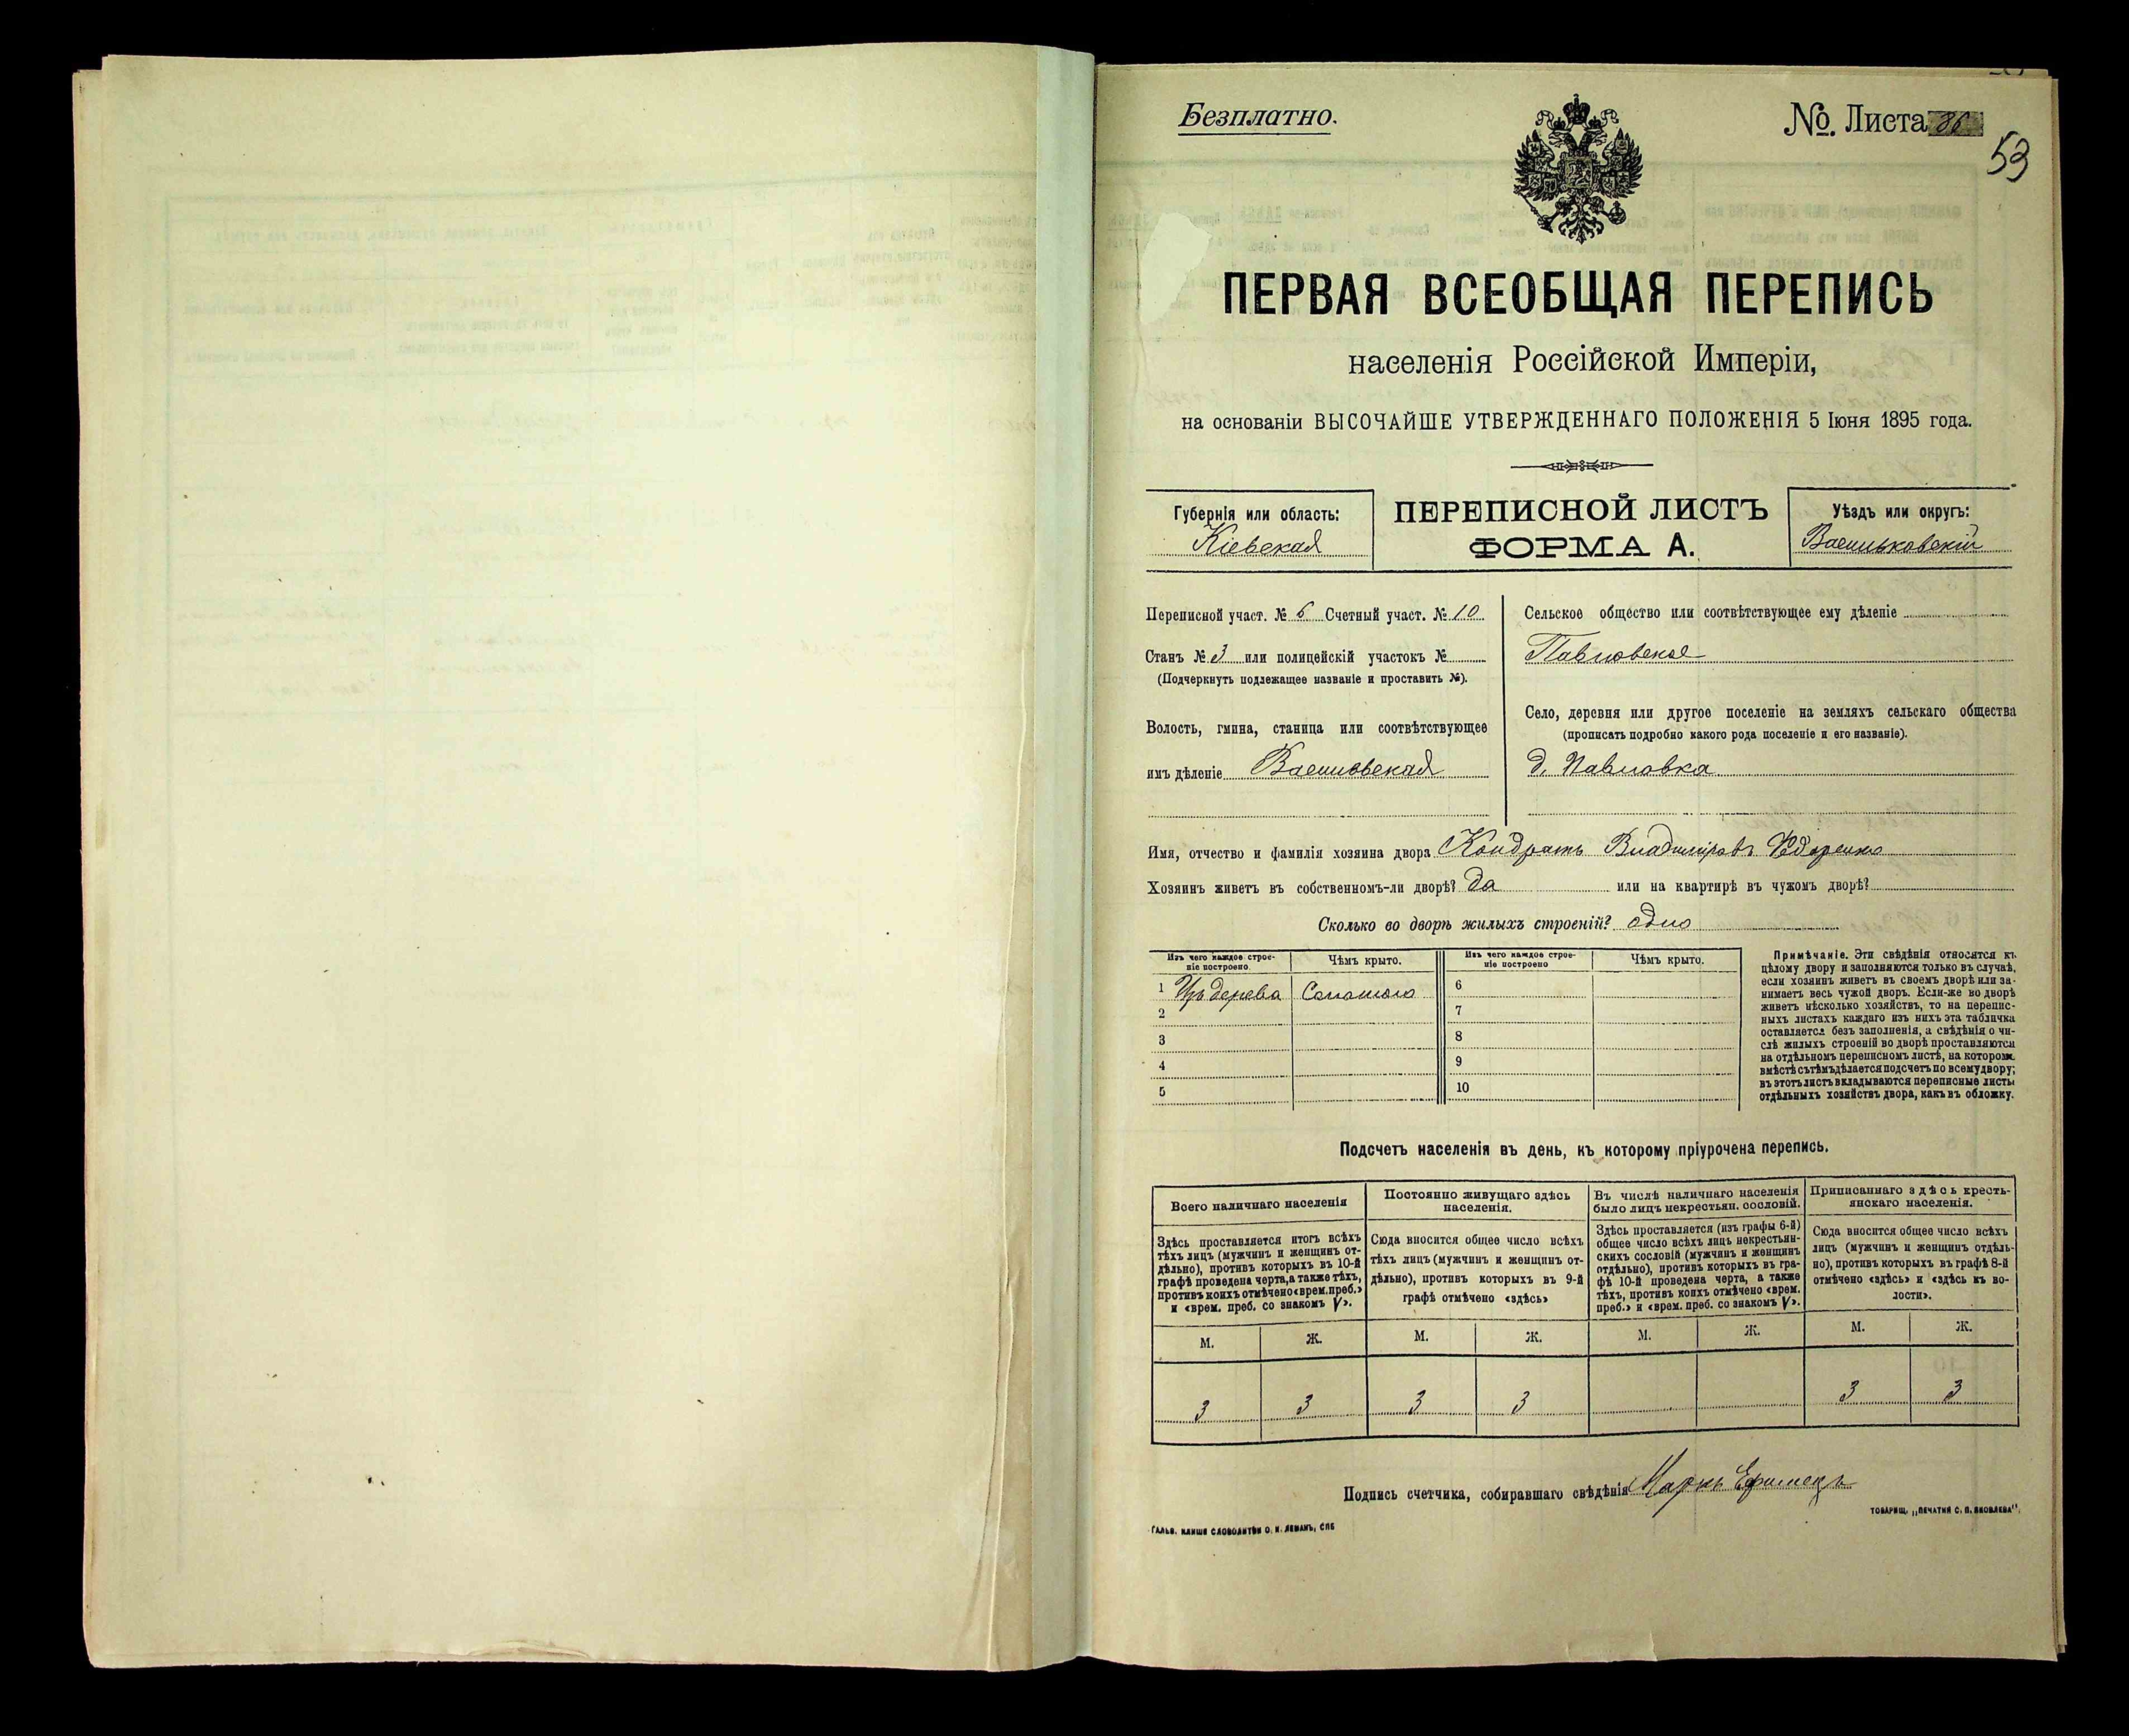 Безплатно.
№. Листа 86
53
ПЕРВАЯ ВСЕОБЩАЯ ПЕРЕПИСЬ
населенія Россійской Имперіи,
на основаніи ВЫСОЧАЙШЕ УТВЕРЖДЕННАГО ПОЛОЖЕНІЯ 5 Іюня 1895 года.
Губернія или область:
Кіевская
ПЕРЕПИСНОЙ ЛИСТЪ
ФОРМА А.
Уѣздъ или округъ:
Васильковскій
Переписной участ. № 6 Счетный участ. № 10
Станъ № 3 или полицейскій участокъ №
(Подчеркнуть подлежащее названіе и проставить №).
Волость, гмина, станица или соотвѣтствующее
имъ дѣленіе
Сельское общество или соотвѣтствующее ему дѣленіе
Павловское
Село, деревня или другое поселеніе на земляхъ сельскаго общества
(прописать подробно какого рода поселеніе и его названіе).
д. Павловка
Имя, отчество и фамилія хозяина двора Кондратъ Владиміровъ
Хозяинъ живетъ въ собственномъ-ли дворѣ? да или на квартирѣ въ чужомъ дворѣ?
Сколько во дворѣ жилыхъ строеній? одно
Изъ чего каждое строе-
ніе построено
Чѣмъ крыто.
Изъ чего каждое строе-
ніе построено
Чѣмъ крыто.
1 Изъ дерева Соломою
2
3
4
5
6
7
8
9
10
Примѣчаніе. Эти свѣдѣнія относятся къ
цѣлому двору и заполняются только въ случаѣ,
если хозяинъ живетъ въ своемъ дворѣ или за-
нимаетъ весь чужой дворъ. Если-же во дворѣ
живетъ нѣсколько хозяйствъ, то на перепис-
ныхъ листахъ каждаго изъ нихъ эта табличка
оставляется безъ заполненія, а свѣдѣнія о чи-
слѣ жилыхъ строеній во дворѣ проставляются
на отдѣльномъ переписномъ листѣ, на которомъ
вмѣстѣ съ тѣмъ дѣлается подсчетъ по всему двору;
въ этотъ листъ вкладываются переписные листы
отдѣльныхъ хозяйствъ двора, какъ въ обложку.
Подсчетъ населенія въ день, къ которому пріурочена перепись.
Всего наличнаго населенія
Здѣсь проставляется итогъ всѣхъ
тѣхъ лицъ (мужчинъ и женщинъ от-
дѣльно), противъ которыхъ въ 10-й
графѣ проведена черта, а также тѣхъ,
противъ коихъ отмѣчено «врем. преб.»
и «врем. преб. со знакомъ V».
Постоянно живущаго здѣсь
населенія.
Сюда вносится общее число всѣхъ
тѣхъ лицъ (мужчинъ и женщинъ от-
дѣльно), противъ которыхъ въ 9-й
графѣ отмѣчено «здѣсь»
Въ числѣ наличнаго населенія
было лицъ некрестьян. сословій.
Здѣсь проставляется (изъ графы 6-й)
общее число всѣхъ лицъ некрестьян-
скихъ сословій (мужчинъ и женщинъ
отдѣльно), противъ которыхъ въ гра-
фѣ 10-й проведена черта, а также
тѣхъ, противъ коихъ отмѣчено «врем.
преб.» и «врем. преб. со знакомъ V».
Приписаннаго здѣсь кресть-
янскаго населенія.
Сюда вносится общее число всѣхъ
лицъ (мужчинъ и женщинъ отдѣль-
но), противъ которыхъ въ графѣ 8-й
отмѣчено «здѣсь» и «здѣсь къ во-
лости».
М. Ж. М. Ж. М. Ж. М. Ж.
3 3 3 3 3 3
Подпись счетчика, собиравшаго свѣдѣнія Маркъ
ГАЛЬВ. КЛИШЕ СЛОВОЛИТНИ О. И. ЛЕМАНЪ, СПБ
ТОВАРИЩ. „ПЕЧАТНЯ С. П. ЯКОВЛЕВА".